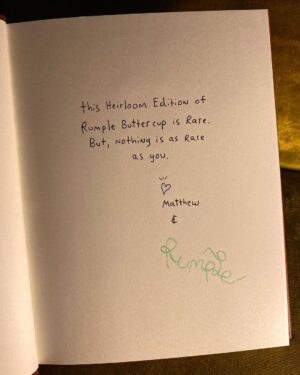 this Heirloom Edition of
Rumple Buttercup is Rare.
But, Nothing is as Rare
as you.
Matthew
&
Rumple